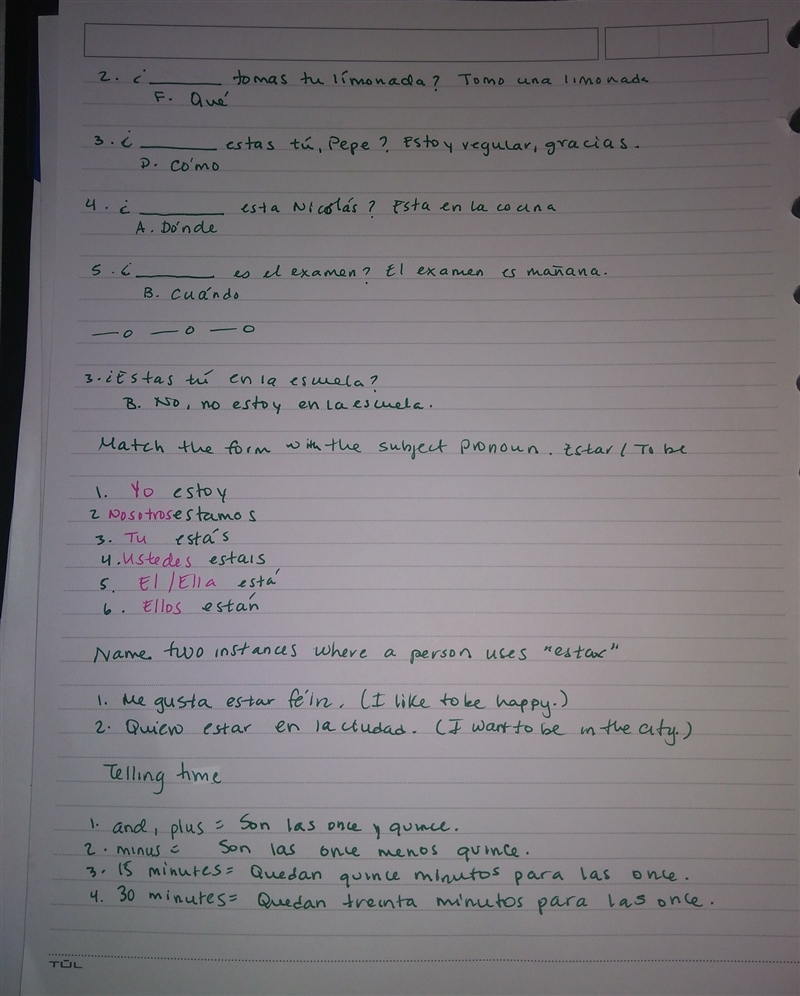 2. ¿ ______ tomas tu limonada? Tomo una limonada
F. Qué
3. ¿ ______ estas tú, Pepe? Estoy regular, gracias.
D. Cómo
4. ¿ ______ esta Nicolás? Esta en la cocina
A. Dónde
5. ¿ ______ es el examen? El examen es mañana.
B. Cuándo
—o —o —o
3. ¿Estas tú en la escuela?
B. No, no estoy en la escuela.
Match the form with the subject pronoun. Estar / To be
1. Yo estoy
2 Nosotros estamos
3. Tu estás
4. Ustedes estais
5. El/Ella está
6. Ellos están
Name two instances where a person uses "estar"
1. Me gusta estar féliz. (I like to be happy.)
2. Quiero estar en la ciudad. (I want to be in the city.)
Telling time
1. and, plus = Son las once y quince.
2. minus = Son las once menos quince.
3. 15 minutes = Quedan quince minutos para las once.
4. 30 minutes = Quedan treinta minutos para las once.
TUL